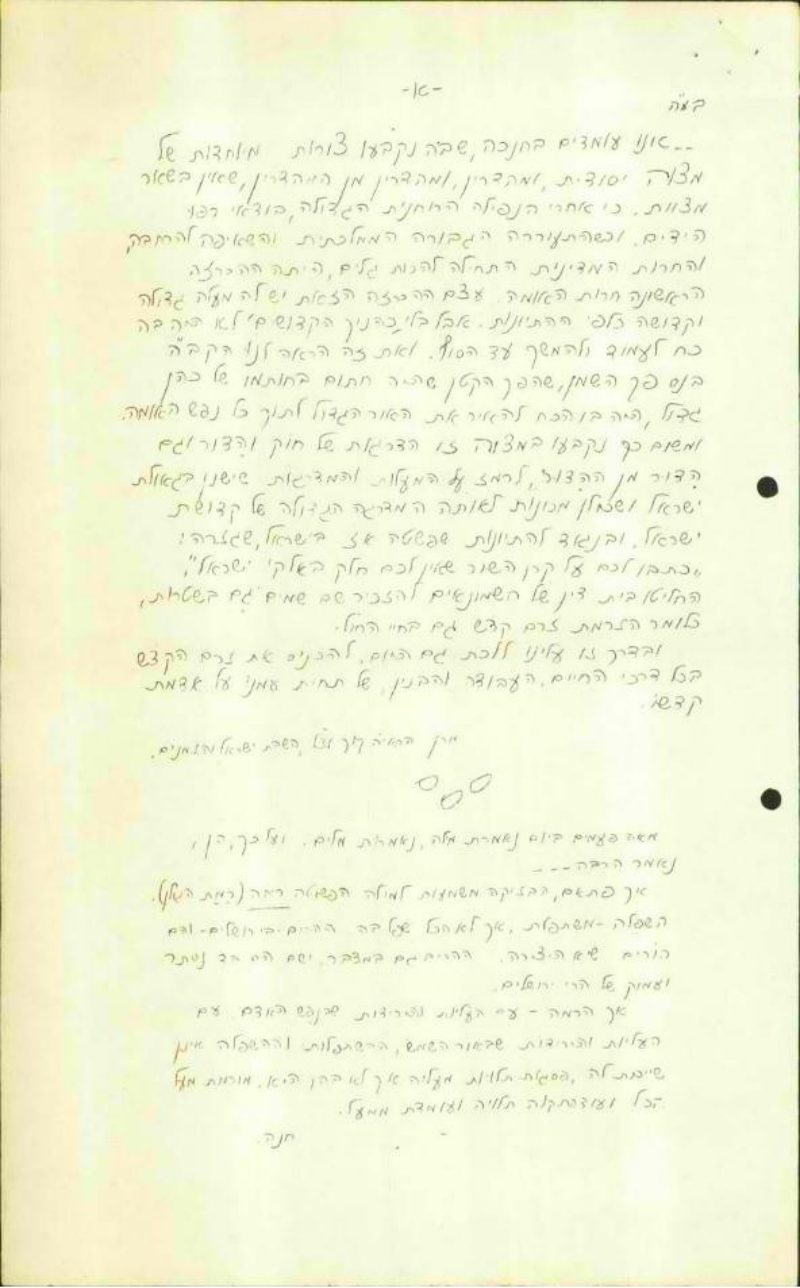 -א-
בע"ה
-- אנו עומדים בחנוכה, שבה נקבעו צורות מיוחדות של
מצוה יסודית, ומהדרין, ומהדרין מן המהדרין, שאין בשאר
מצוות. כי אחרי הנפילה הרוחנית הגדולה, בודאי רפו
הידים. וכשהתעוררה הגבורה הממלכתית והשאיפה להרחבה,
והחרות המדינית התחילה להכות גלים, היתה ההכרזה
הראשונה חרות האומה. עצם ההכרזה הזאת יש לה מעלה גדולה
וקדושה כלפי ההתיונות. אבל בלי "כהניך הקדושים" לא היה בה
כח לעמוד ולהמשך עד הסוף. ואת זה הראה לנו הקב"ה
בנס פך השמן, שהפך הקטן שהיה חתום בחותמו של כהן
גדול, היה בו הכח להאיר את האור הגדול לתוך כל נפש האומה.
ומשום כך נקבעו במצוה זו הדרגות של חוק והדור וגם
הדור מן ההדור, לרמז על המעלות והמדרגות שישנן בגאולת
ישראל ושכולן מכוונות לאותה המדרגה הגדולה של קדושת
ישראל. ובניגוד להתיונות שפשטה אז בישראל, שגזרה:
"כתבו לכם על קרן השור שאין לכם חלק באלקי ישראל",
החליטו בית דין של חשמונאים להזכיר שם שמים גם בשטרות,
כלומר הזרמת זרם קדש גם בחיי החול.
ובדרך זו עלינו ללכת גם היום. להכניס את זרם הקדש
בכל דרכי החיים. העבודה והבנין, של תחית עמנו על אדמת
קדשו.
מרן הראי"ה קוק זצ"ל, השבת ישראל וזמנים.
מאה פעמים ביום נאמרת מלה, נאמרות מלים. ועל כך, הן,
נאמר הרבה---
איך פתאם, הבזיקה משמעות למילה הפשוטה רמה (רמת הגולן).
השפלה - משתפלת, אך לא הכל שפל בה ההרים-בירושלים-
הורים שיא היצירה. ההרים גם במדבר, ישם הוד נסתר
ועמוק של הרי ירושלים.
אך הרמה - עם העליות והירידות שבנפש האדם. עם
העליות והירידות שבאור השמש, ההשתפלות וההשפלה אינן
שייכות לה, פסגות תלויות מעליה אך לא בהן היא. מורמת מעל
הכל ועוד תקוה תלויה ועומדת ממעל.
חנה.